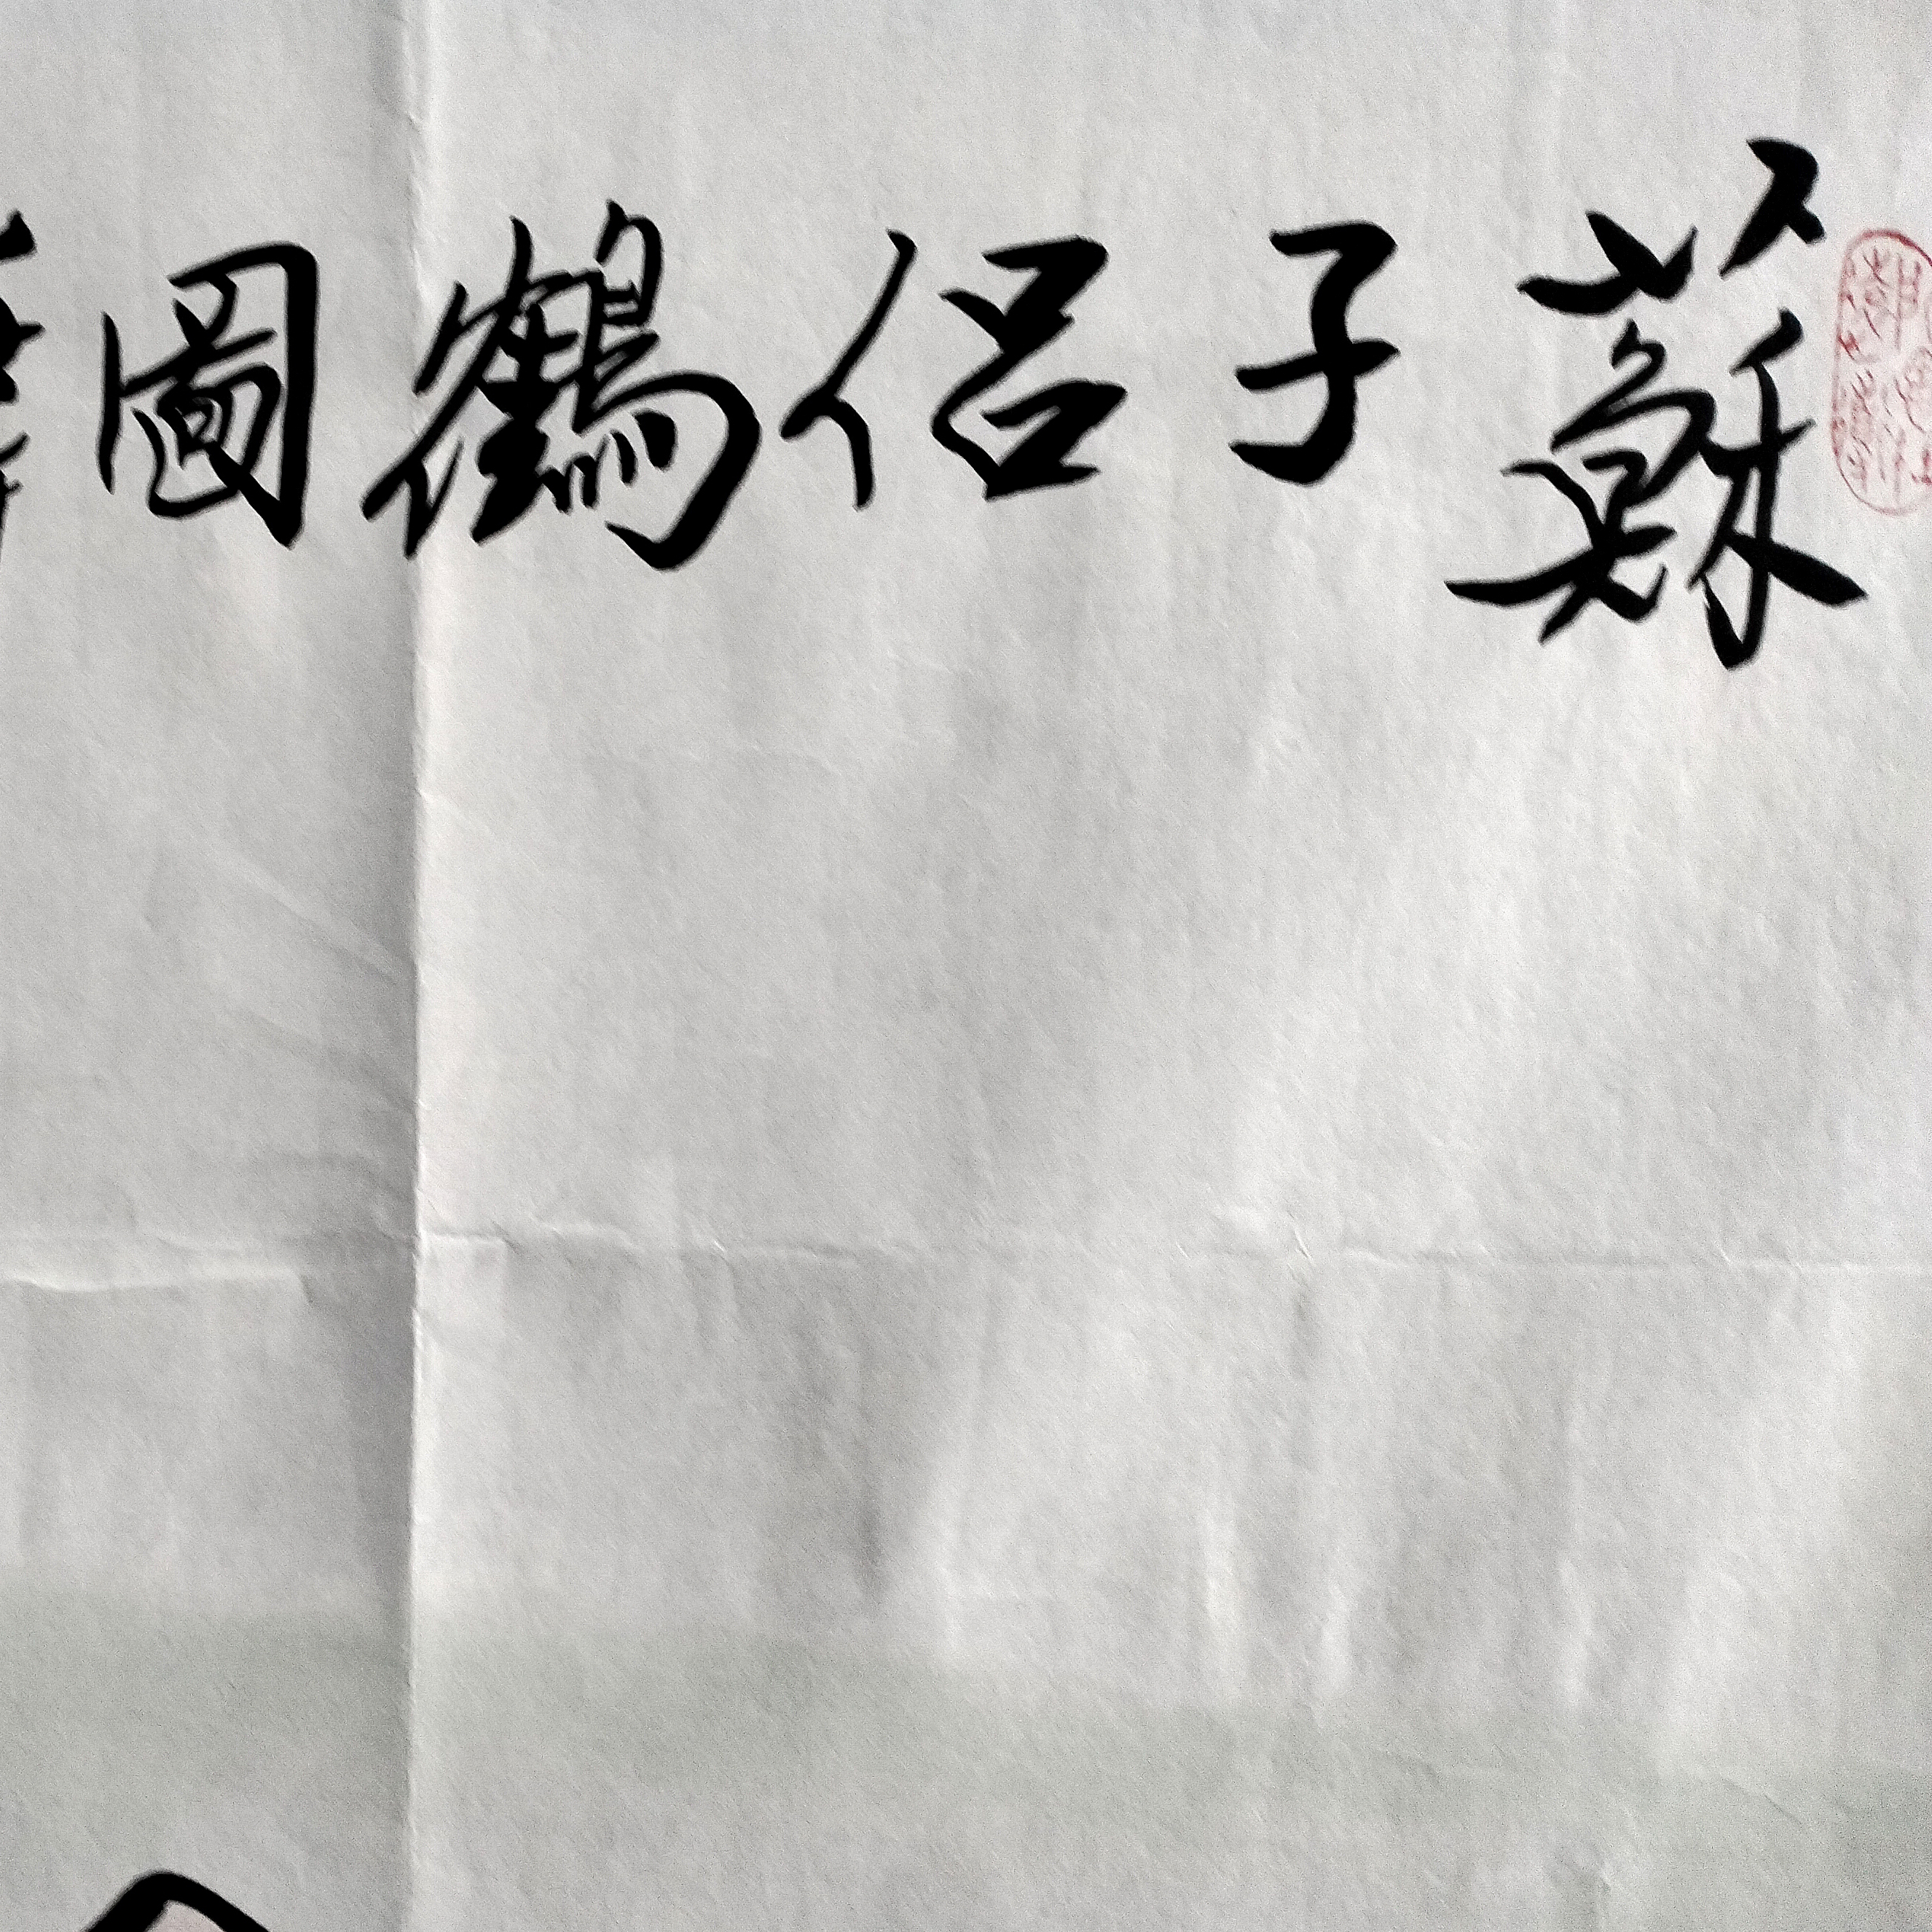 蘇子侶鶴圖